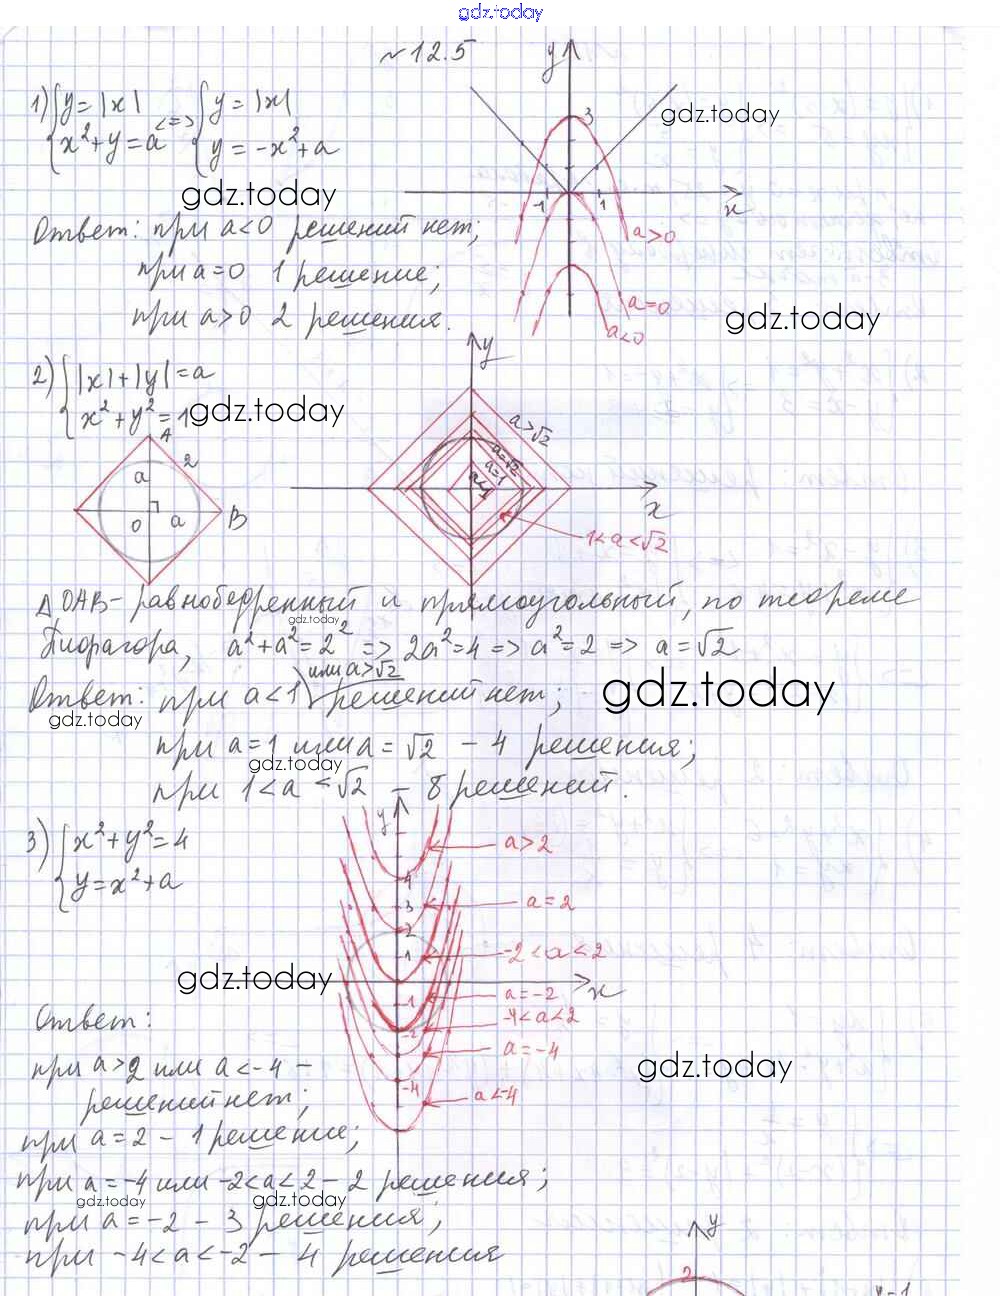 gdz.today
№12.5
1) { y = |x|
x² + y = a <=> { y = |x|
y = -x² + a
gdz.today
gdz.today
y
3
-1
1
x
a>0
a=0
a<0
Ответ: при a<0 решений нет;
при a=0 1 решение;
при a>0 2 решения.
gdz.today
2) { |x|+|y| = a
x² + y² = 1
gdz.today
A
2
a
0
a
B
y
a>√2
a=√2
a=1
a<1
x
1<a<√2
Δ OAB - равнобедренный и прямоугольный, по теореме
gdz.today
Пифагора, a²+a²=2² => 2a²=4 => a²=2 => a=√2
или a>√2
Ответ: при a<1 решений нет;
gdz.today
gdz.today
при a=1 или a=√2 - 4 решения;
gdz.today
при 1<a<√2 - 8 решений.
3) { x²+y²=4
y=x²+a
y
4
3
2
1
-1
-2
-4
x
a>2
a=2
-2<a<2
a=-2
-4<a<2
a=-4
a<-4
gdz.today
gdz.today
Ответ:
при a>2 или a<-4 -
решений нет;
при a=2 - 1 решение;
при a=-4 или -2<a<2 - 2 решения;
gdz.today
gdz.today
при a=-2 - 3 решения;
при -4<a<-2 - 4 решения
y
2